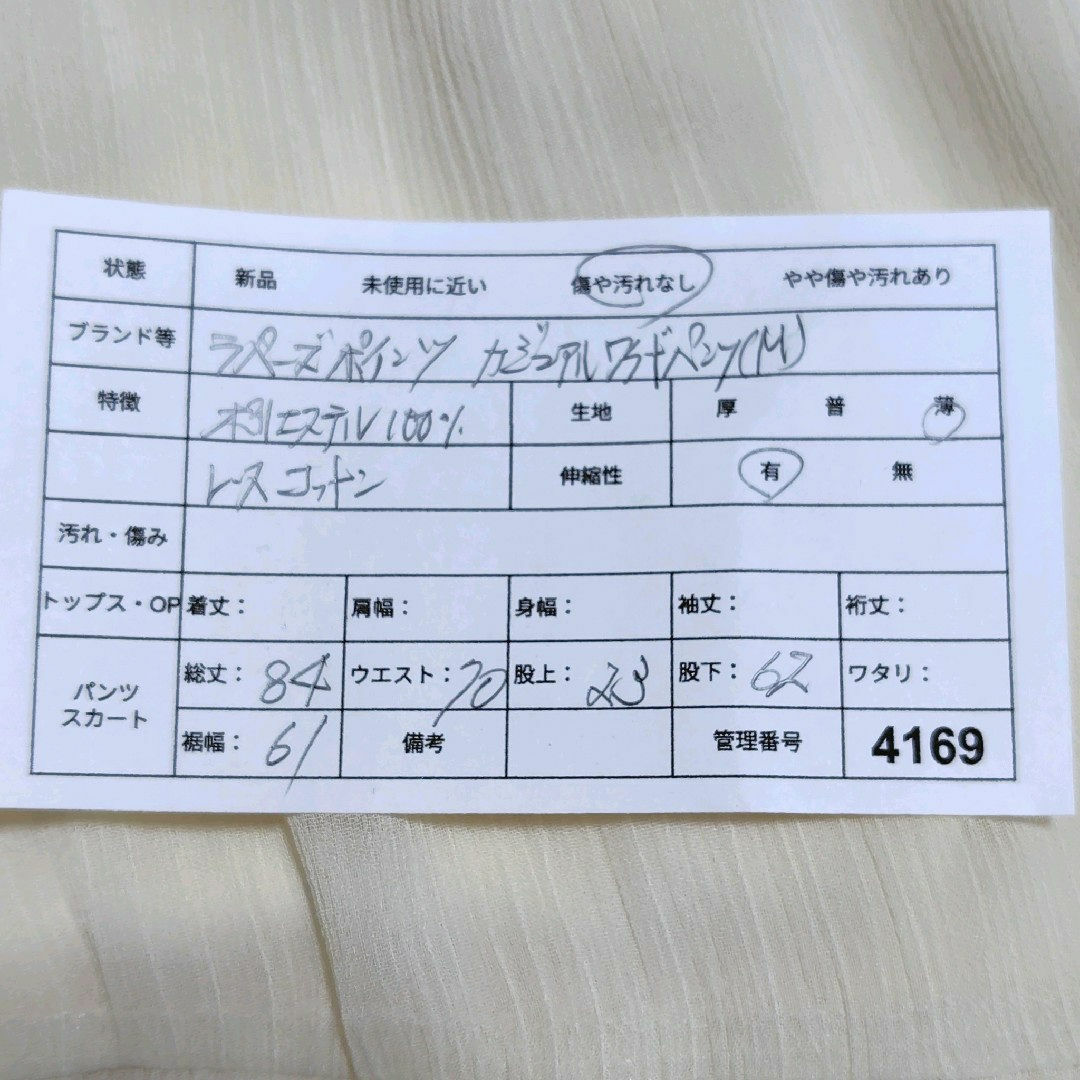 状態 新品 未使用に近い 傷や汚れなし やや傷や汚れあり
ブランド等 ラペーズポインツ カジュアルワイドパンツ(M)
特徴 ポリエステル100% 生地 厚 普 薄
レースコットン 伸縮性 有 無
汚れ・傷み
トップス・OP 着丈: 肩幅: 身幅: 袖丈: 裄丈:
パンツ スカート 総丈: 84 ウエスト: 70 股上: 23 股下: 62 ワタリ:
裾幅: 61 備考 管理番号 4169